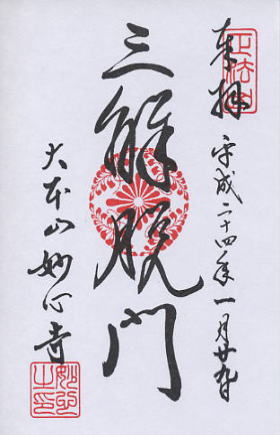 正法山
奉拝
平成二十四年一月廿
三解脱門
大本山妙心寺
妙心
之印